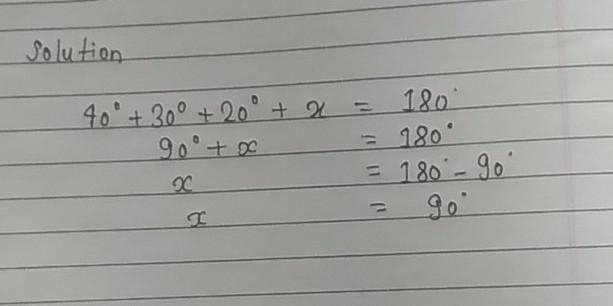 Solution
40° + 30° + 20° + x = 180°
90° + x = 180°
x = 180° - 90°
x = 90°